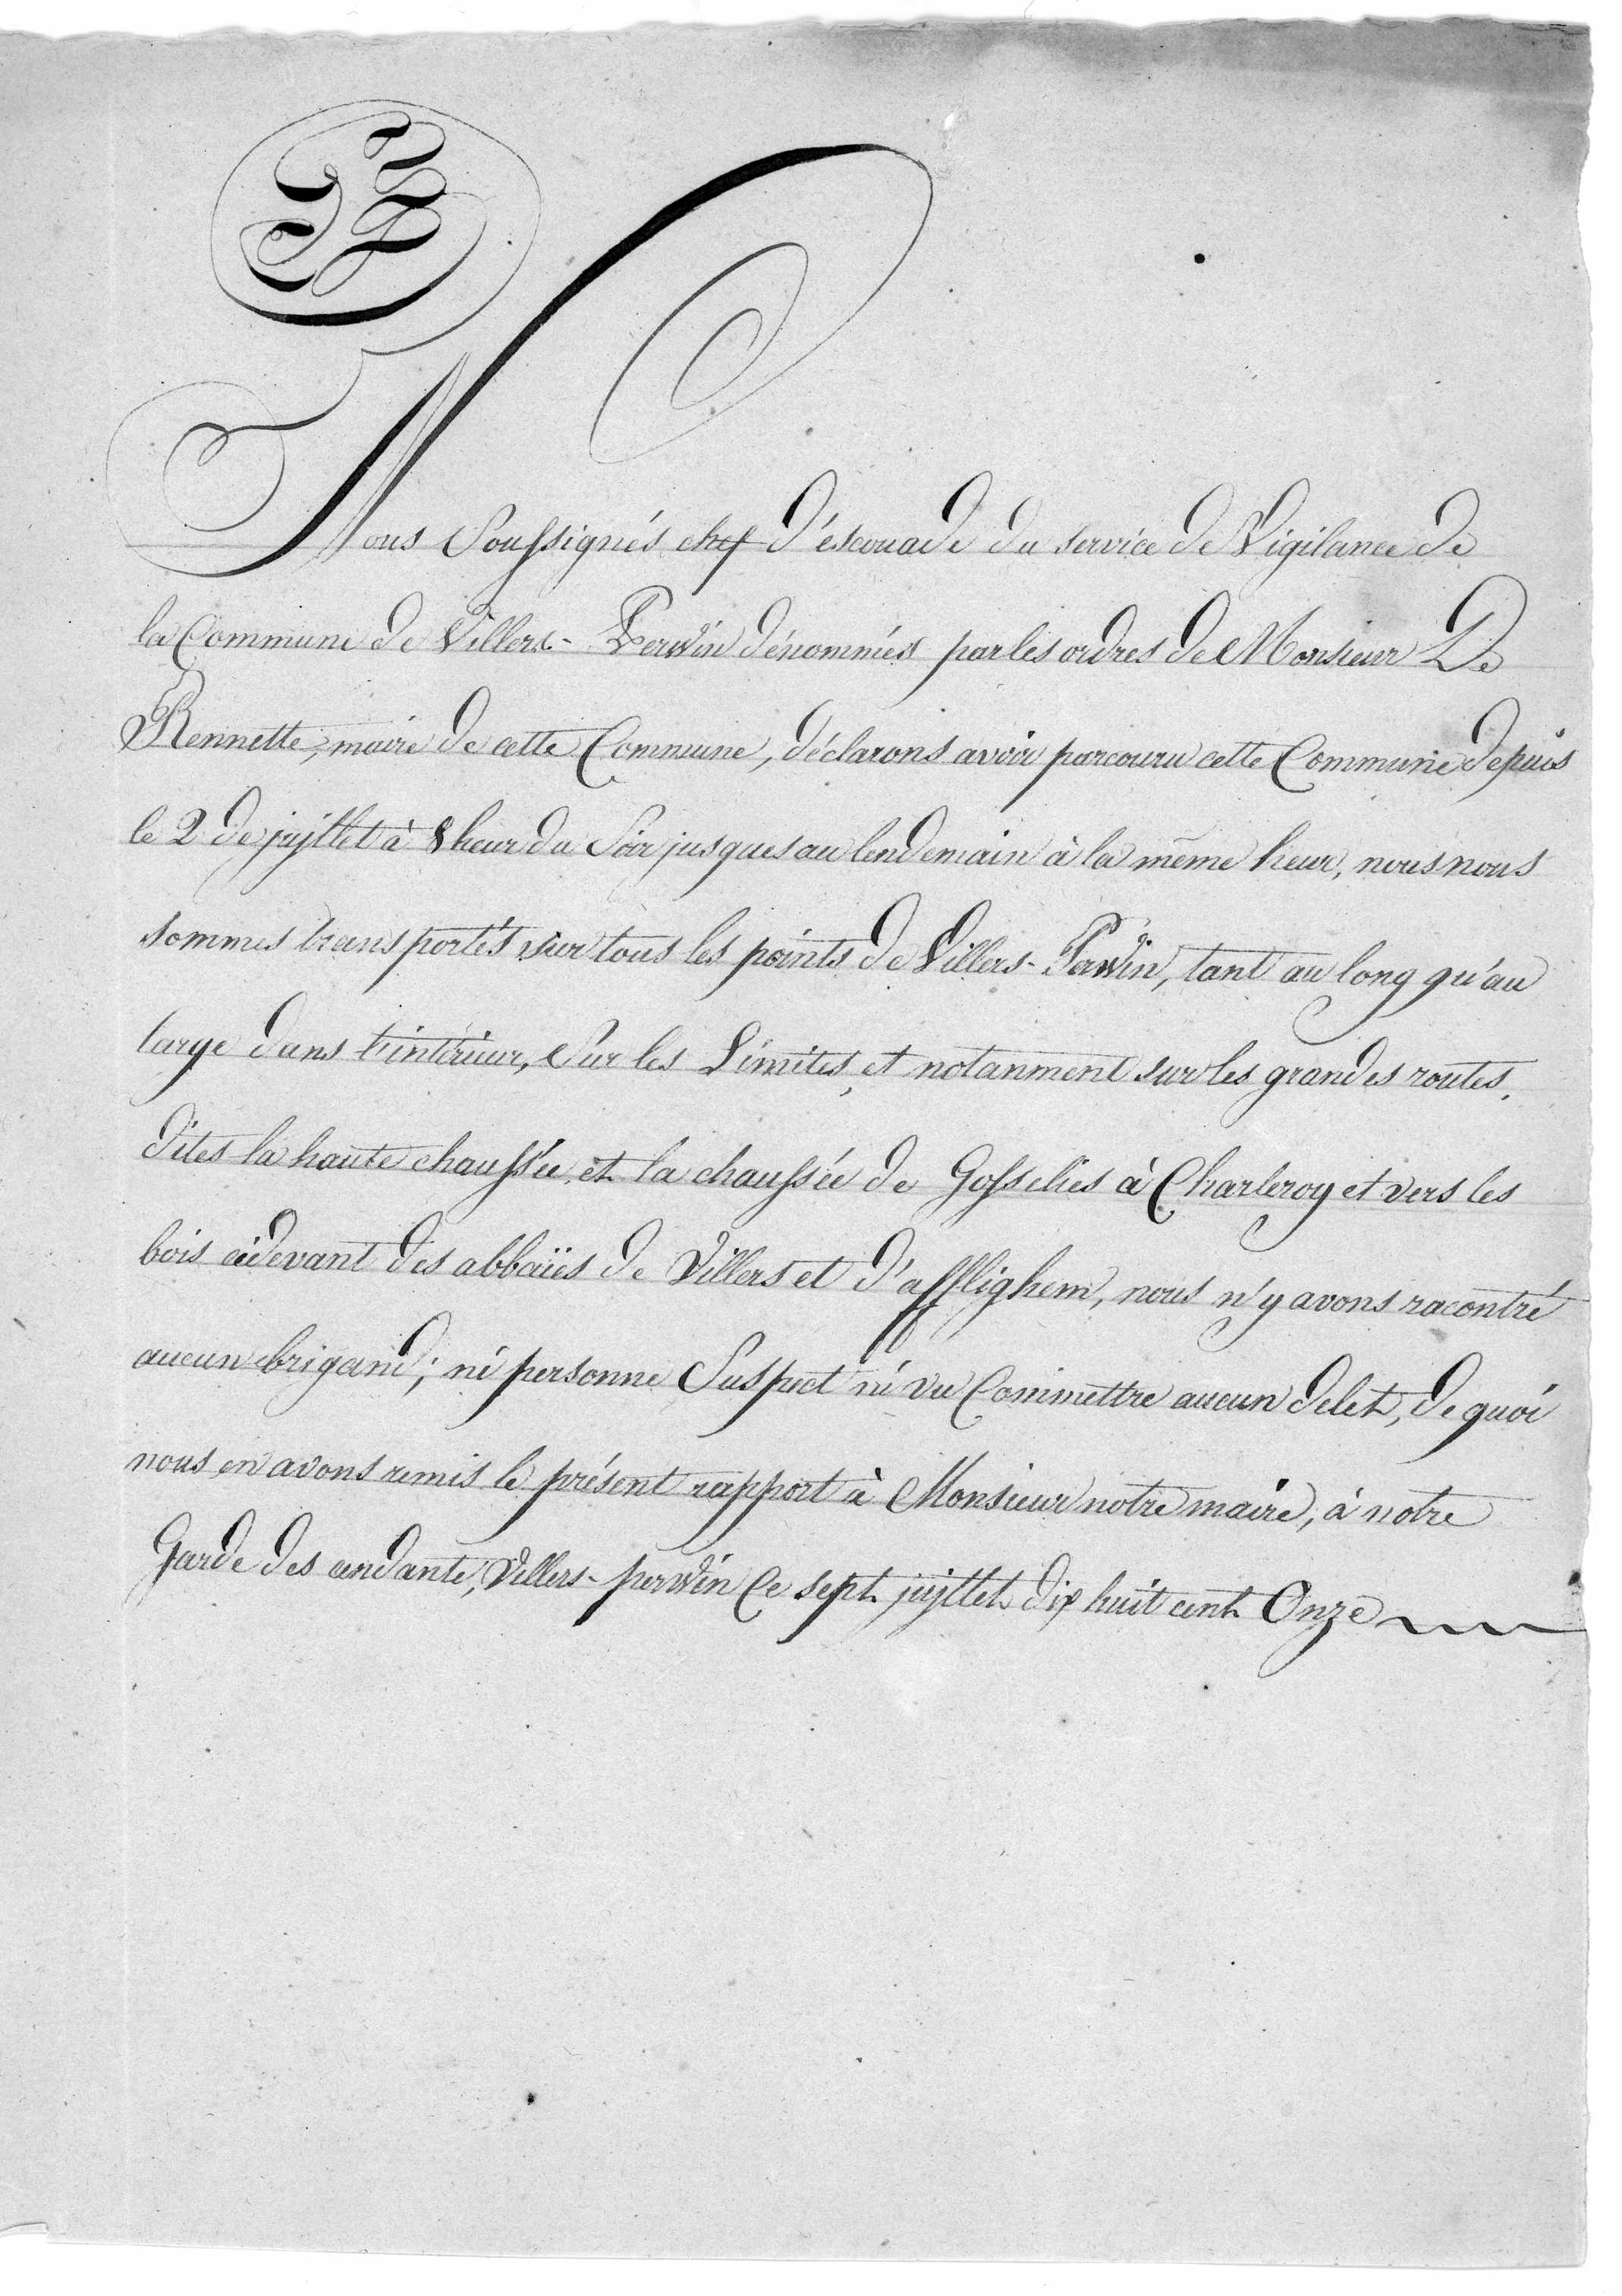 Nous Soussignés chef d'éscouade du service de Vigilance de
la Commune de Villers-Perwin dénommés par les ordres de Monsieur De
Rennette, maire de cette Commune, déclarons avoir parcouru cette Commune depuis
le 2 de juillet à 8 heur du Soir jusques au lendemain à la même heur, nous nous
sommes transportés sur tous les points de Villers-Perwin, tant au long qu'au
large dans l'intérieur, Sur les Limites, et notanment sur les grandes routes,
dites la haute chaussée, et la chaussée de Gosselies à Charleroy et vers les
bois cidevant des abbaïes de Villers et d'afflighem, nous n'y avons racontré
aucun brigand; ni personne Suspect ni vu Commettre aucun delet, de quoi
nous en avons remis le présent rapport à Monsieur notre maire, à notre
Garde des cendante, Villers-perwin Ce sept juillet dix huit cent Onze